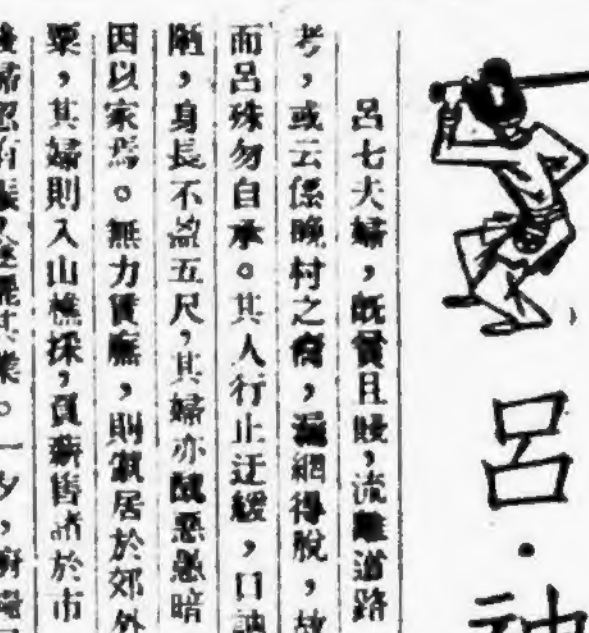 呂·神
呂七夫婦，既貧且賤，流離道路
考，或云係晚村之裔，漏網得脫，故
而呂殊勿自承。其人行止迂緩，口訥
陋，身長不盈五尺，其婦亦醜惡愚暗
因以家焉。無力賃廡，則僦居於郊外
粟，其婦則入山樵採，負薪售諸於市
其業。一夕，